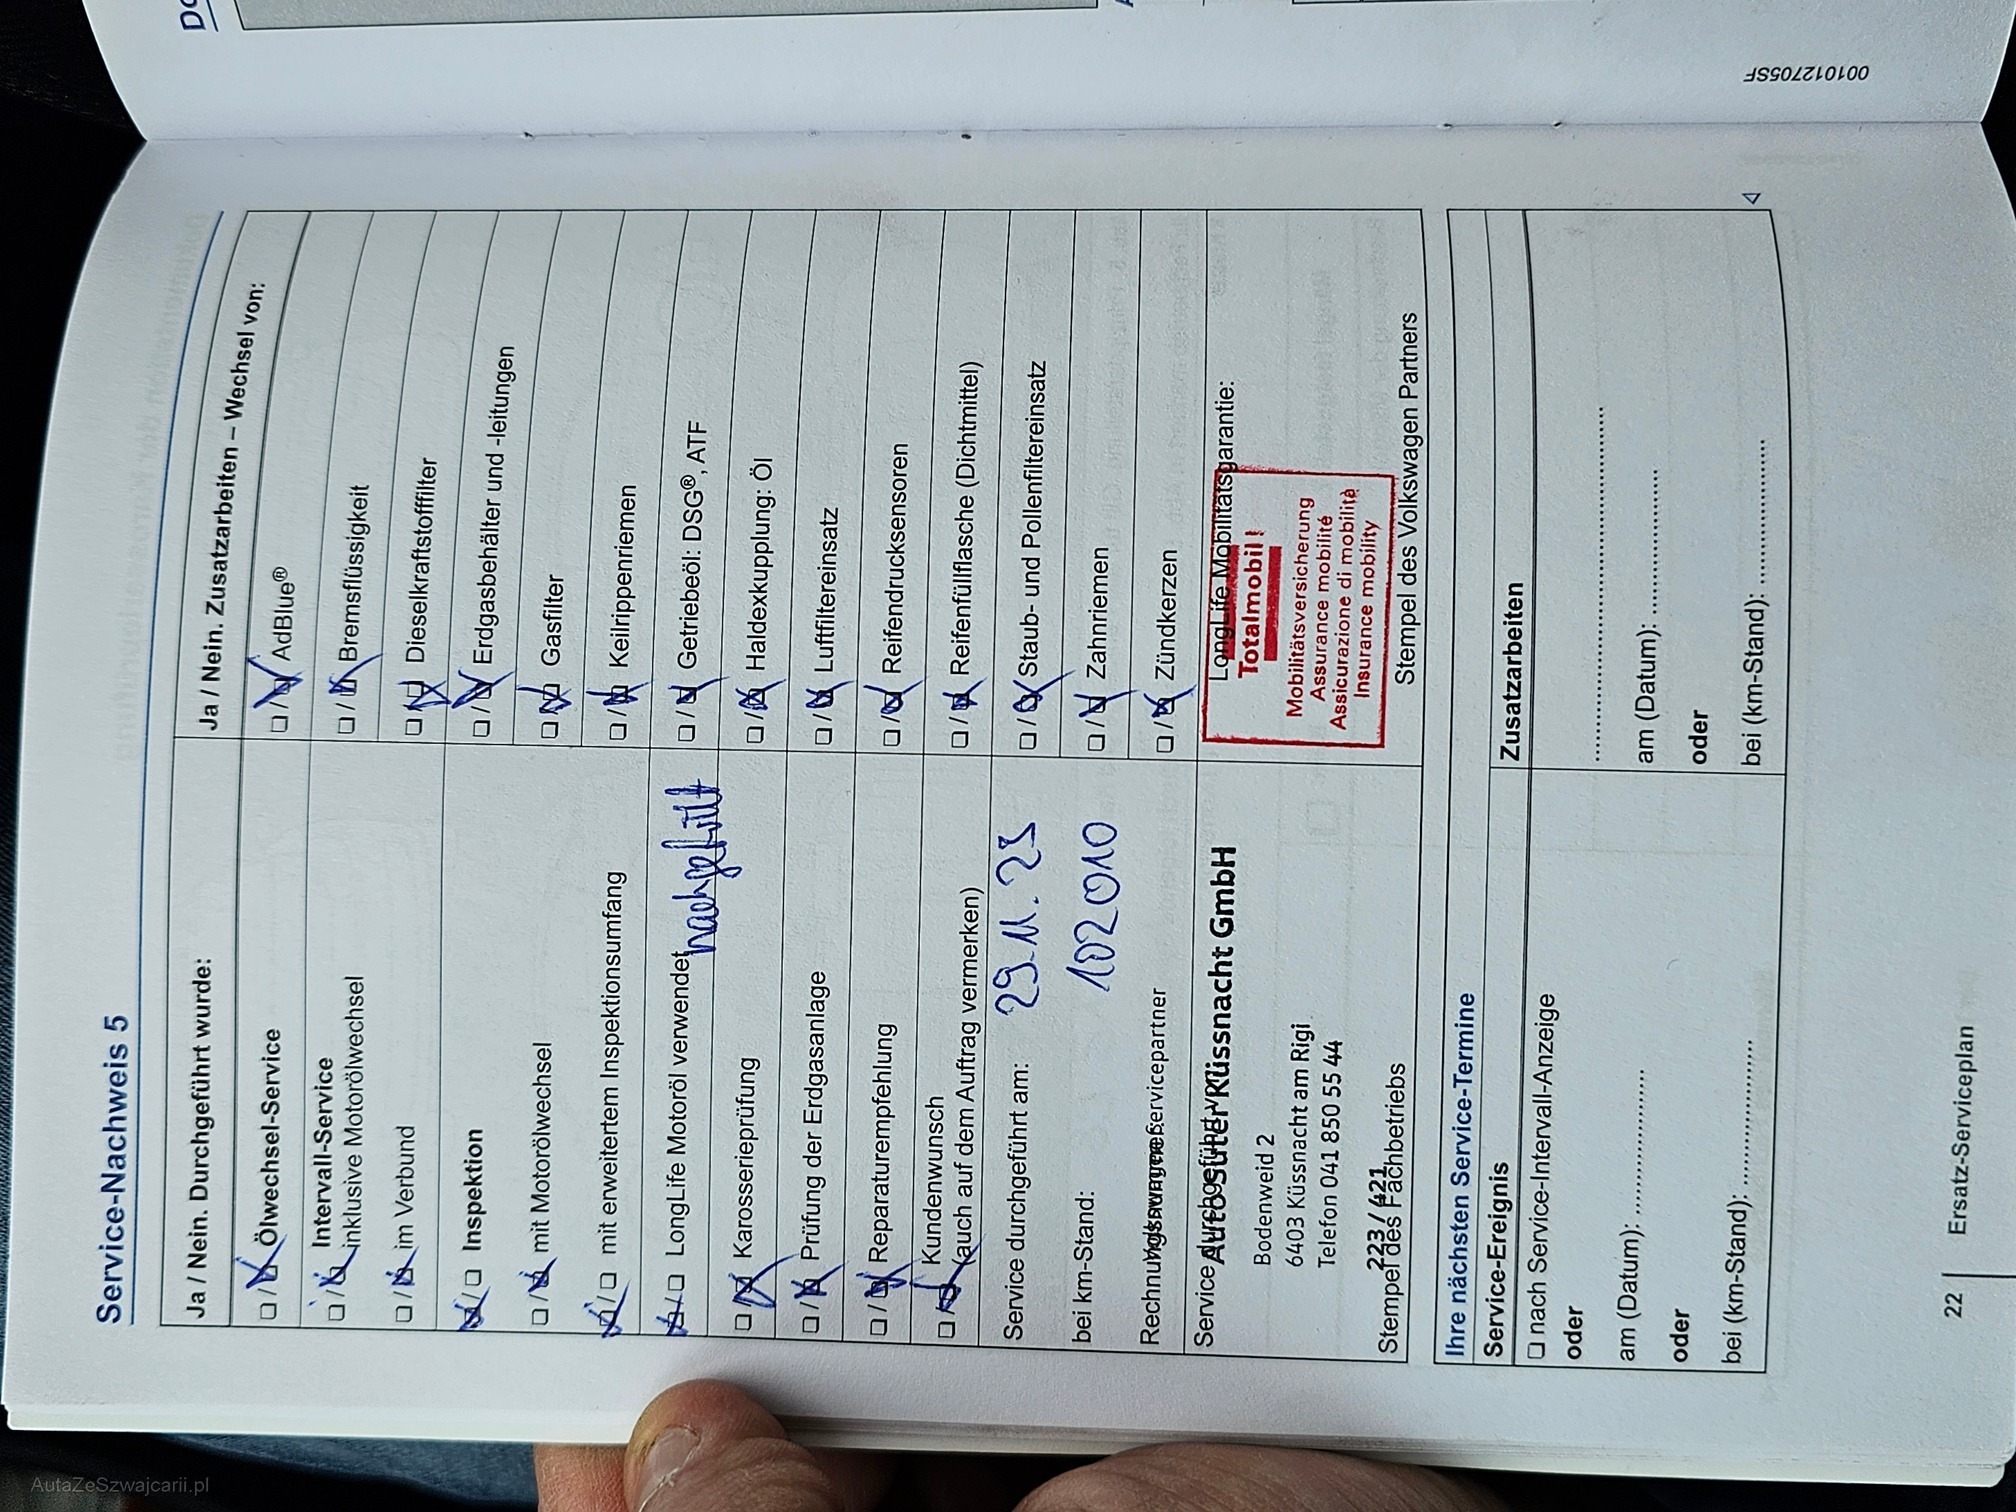 Service-Nachweis 5
Ja / Nein. Durchgeführt wurde:
☐ / ☒ Ölwechsel-Service
☐ / ☒ Intervall-Service
inklusive Motorölwechsel
☐ / ☒ im Verbund
☒ / ☐ Inspektion
☐ / ☒ mit Motorölwechsel
☒ / ☐ mit erweitertem Inspektionsumfang
☒ / ☐ LongLife Motoröl verwendet nachgefüllt
☐ / ☒ Karosserieprüfung
☐ / ☒ Prüfung der Erdgasanlage
☐ / ☒ Reparaturempfehlung
☐ / ☒ Kundenwunsch
(auch auf dem Auftrag vermerken)
Service durchgeführt am: 29.11.23
bei km-Stand: 102010
Servicepartner
Service durchgeführt
Auto Suter Küssnacht GmbH
Bodenweid 2
6403 Küssnacht am Rigi
Telefon 041 850 55 44
223 / 421
Stempel des Fachbetriebs
Ja / Nein. Zusatzarbeiten – Wechsel von:
☐ / ☒ AdBlue®
☐ / ☒ Bremsflüssigkeit
☐ / ☒ Dieselkraftstofffilter
☐ / ☒ Erdgasbehälter und -leitungen
☐ / ☒ Gasfilter
☐ / ☒ Keilrippenriemen
☐ / ☒ Getriebeöl: DSG®, ATF
☐ / ☒ Haldexkupplung: Öl
☐ / ☒ Luftfiltereinsatz
☐ / ☒ Reifendrucksensoren
☐ / ☒ Reifenfüllflasche (Dichtmittel)
☐ / ☒ Staub- und Pollenfiltereinsatz
☐ / ☒ Zahnriemen
☐ / ☒ Zündkerzen
LongLife Mobilitätsgarantie:
Totalmobil!
Mobilitätsversicherung
Assurance mobilité
Assicurazione di mobilità
Insurance mobility
Stempel des Volkswagen Partners
Ihre nächsten Service-Termine
Service-Ereignis
☐ nach Service-Intervall-Anzeige
oder
am (Datum): ....................
oder
bei (km-Stand): ....................
Zusatzarbeiten
..................................................
am (Datum): ....................
oder
bei (km-Stand): ....................
22 Ersatz-Serviceplan
001012705SF
AutaZeSzwajcarii.pl